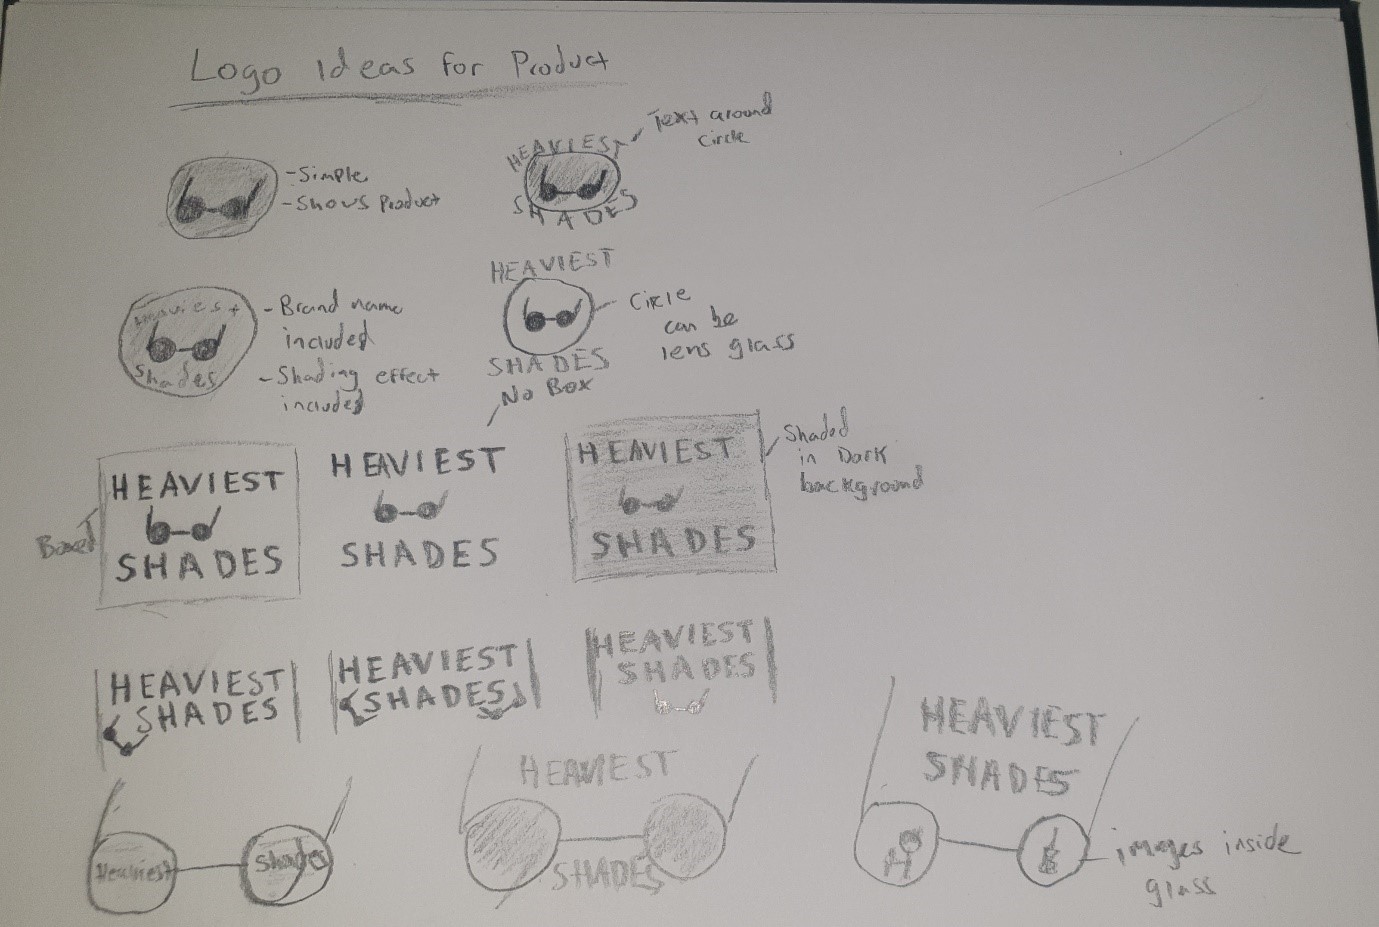 Logo Ideas for Product
-Simple
-Shows Product
HEAVIEST
SHADES
Text around
circle
Heaviest
Shades
-Brand name
included
-Shading effect
included
HEAVIEST
SHADES
Circle
can be
lens glass
No Box
Boxed
HEAVIEST
SHADES
HEAVIEST
SHADES
HEAVIEST
SHADES
Shaded
in Dark
background
HEAVIEST
SHADES
HEAVIEST
SHADES
HEAVIEST
SHADES
Heaviest
Shades
HEAVIEST
SHADES
HEAVIEST
SHADES
images inside
glass